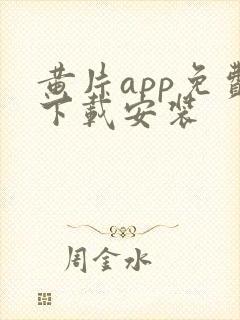 黄片app免费
下载安装
周金水